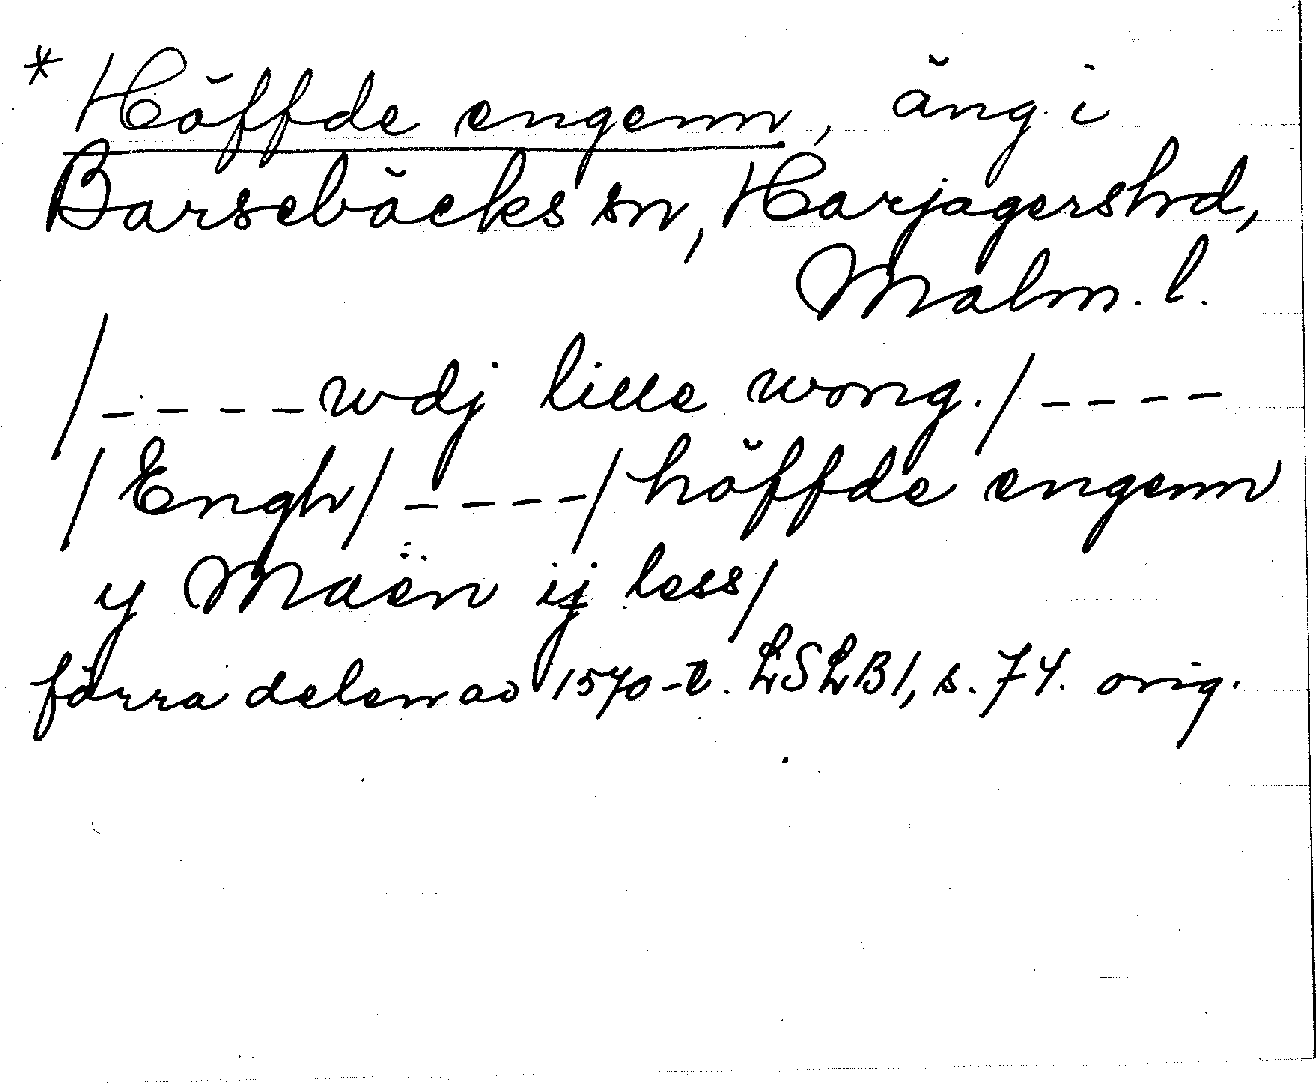 * Höffde engenn, äng i
Barsebäcks sn, Harjagershd,
Malm. l.
/ - - - - wdj lille wong. / - - - -
/ Engh / - - - - / höffde engenn
y Maën ij less /
förra delen av 1570-t. LSLB1, s. 74. orig.